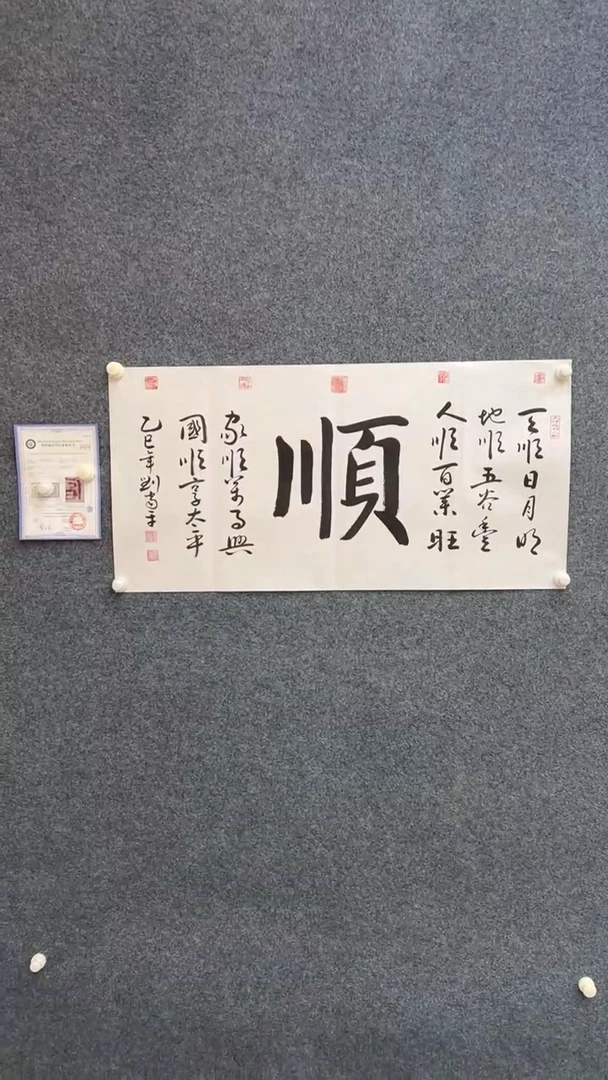 天順日月明
地順五谷豐
人順百業旺
順
家順萬事興
國順享太平
乙巳年劉